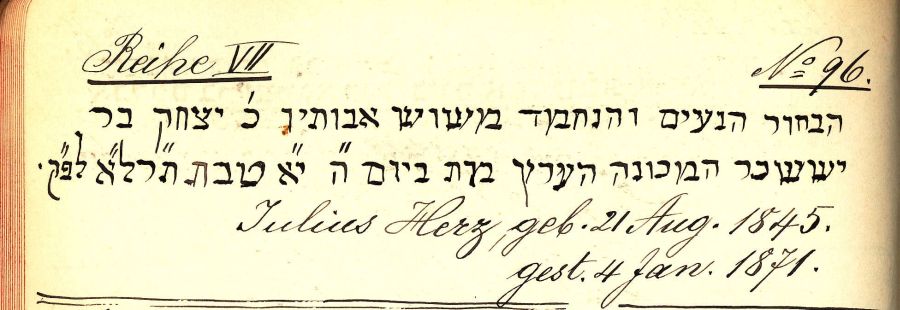 Reihe VII
No 96.
הבחור הנעים והנחמד משוש אבותיו כ' יצחק בר
יששכר המכונה הערץ מת ביום ה' י"א טבת תרל"א לפ"ק.
Julius Herz, geb. 21 Aug. 1845.
gest. 4 Jan. 1871.